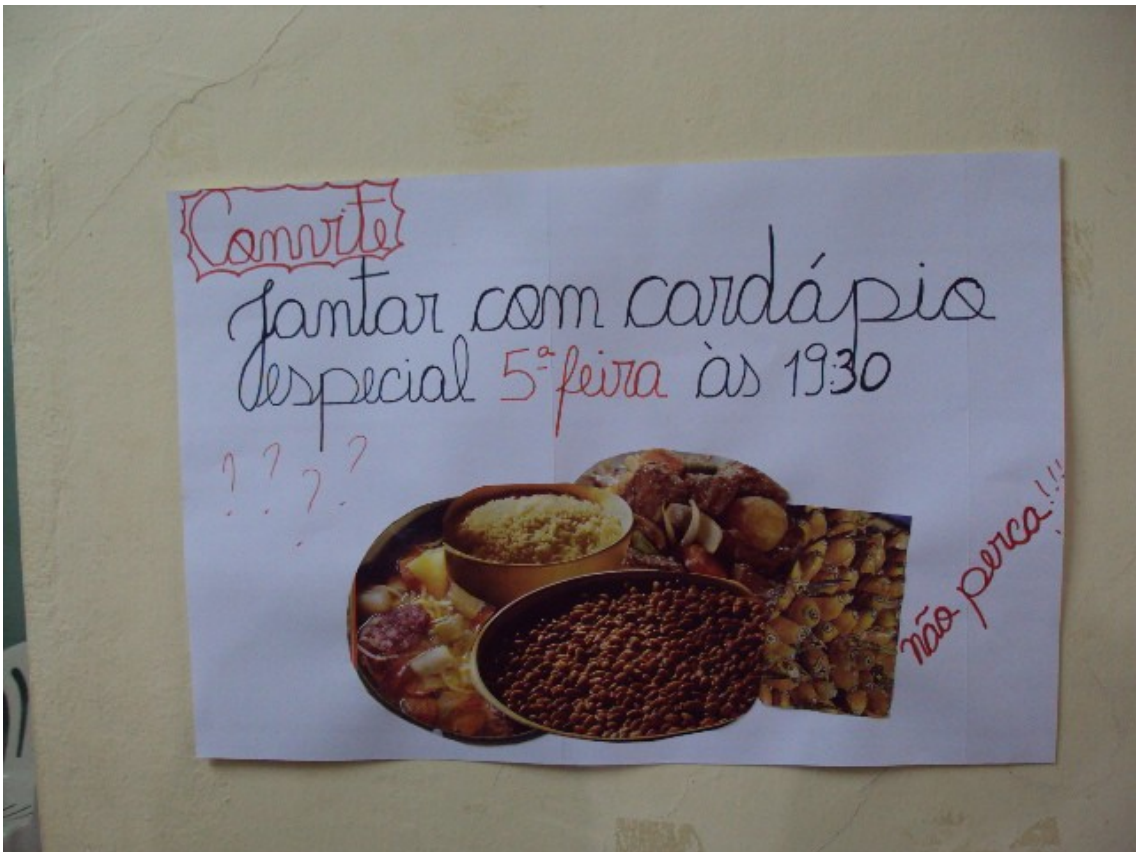 Convite
Jantar com cardápio
especial 5ª feira às 19:30
? ? ? ?
não perca!!!